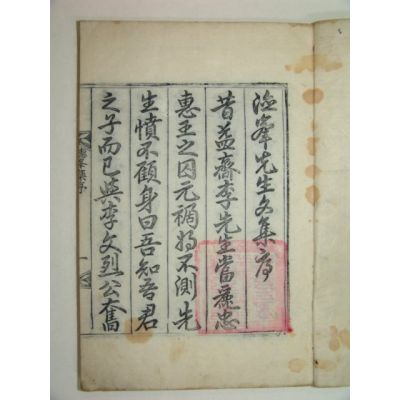 峯先生文集序
昔益齋李先生當麗忠
惠王之囚元禍將不測先
生憤不顧身曰吾知吾君
之子而已與李文烈公奮
峯集序
一